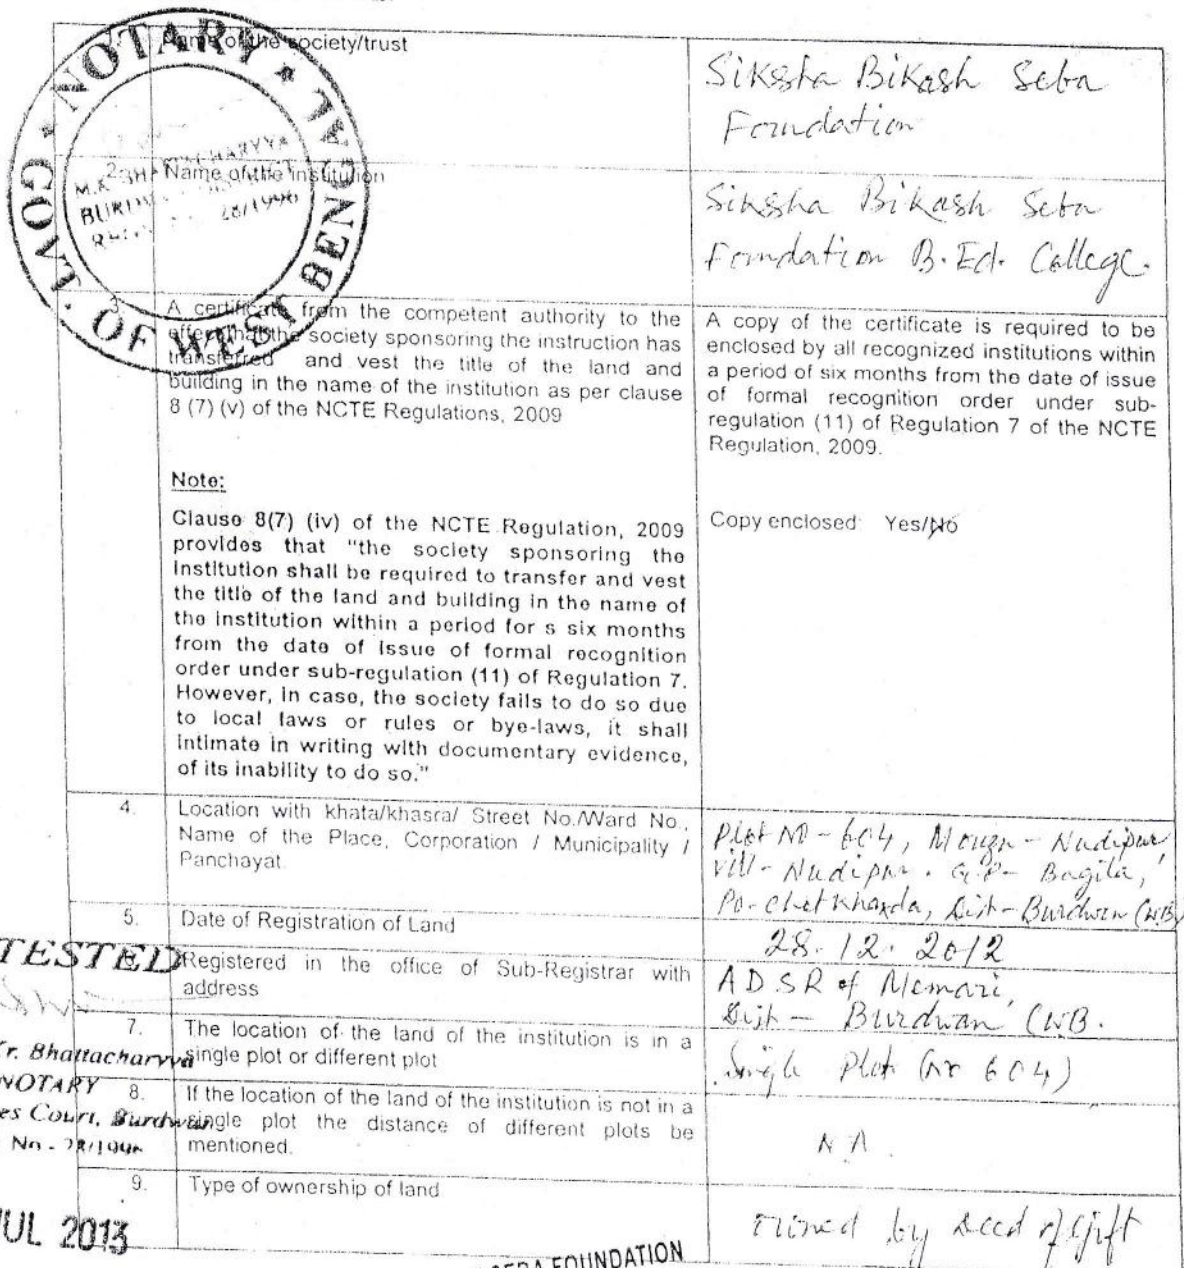 1. Name of the society/trust
Siksha Bikash Seba
Foundation
GOVT. OF WEST BENGAL * NOTARY *
M.K. BHATTACHARYYA
BURDWAN DISTRICT
28/1996
2. Name of the institution
Siksha Bikash Seba
Foundation B.Ed. College.
3. A certificate from the competent authority to the
effect that the society sponsoring the instruction has
transferred and vest the title of the land and
building in the name of the institution as per clause
8 (7) (v) of the NCTE Regulations, 2009
Note:
Clause 8(7) (iv) of the NCTE Regulation, 2009
provides that "the society sponsoring the
institution shall be required to transfer and vest
the title of the land and building in the name of
the institution within a period for s six months
from the date of issue of formal recognition
order under sub-regulation (11) of Regulation 7.
However, in case, the society fails to do so due
to local laws or rules or bye-laws, it shall
intimate in writing with documentary evidence,
of its inability to do so."
A copy of the certificate is required to be
enclosed by all recognized institutions within
a period of six months from the date of issue
of formal recognition order under sub-
regulation (11) of Regulation 7 of the NCTE
Regulation, 2009.
Copy enclosed: Yes/No
4. Location with khata/khasra/ Street No./Ward No.,
Name of the Place, Corporation / Municipality /
Panchayat
Plot No - 604, Mouza - Nudipur,
Vill - Nudipur. G.P - Bagila,
Po - Chotkhanda, Dist - Burdwan (WB)
5. Date of Registration of Land
28.12.2012
6. Registered in the office of Sub-Registrar with
address
A D.S.R of Memari,
Dist - Burdwan (WB.
7. The location of the land of the institution is in a
single plot or different plot
Single Plot (No 604)
8. If the location of the land of the institution is not in a
single plot the distance of different plots be
mentioned.
N A.
9. Type of ownership of land
owned by deed of Gift
TESTED
Kr. Bhattacharyya
NOTARY
es Court, Burdwan
No - 28/1996
JUL 2013
SEBA FOUNDATION